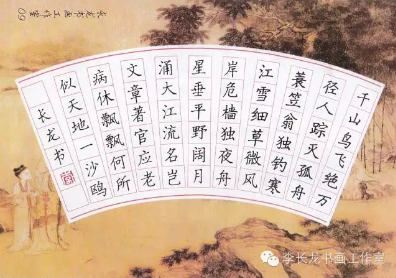 千山鸟飞绝万
径人踪灭孤舟
蓑笠翁独钓寒
江雪细草微风
岸危樯独夜舟
星垂平野阔月
涌大江流名岂
文章著官应老
病休飘飘何所
似天地一沙鸥
长龙书
长龙书画工作室 09
李长龙书画工作室